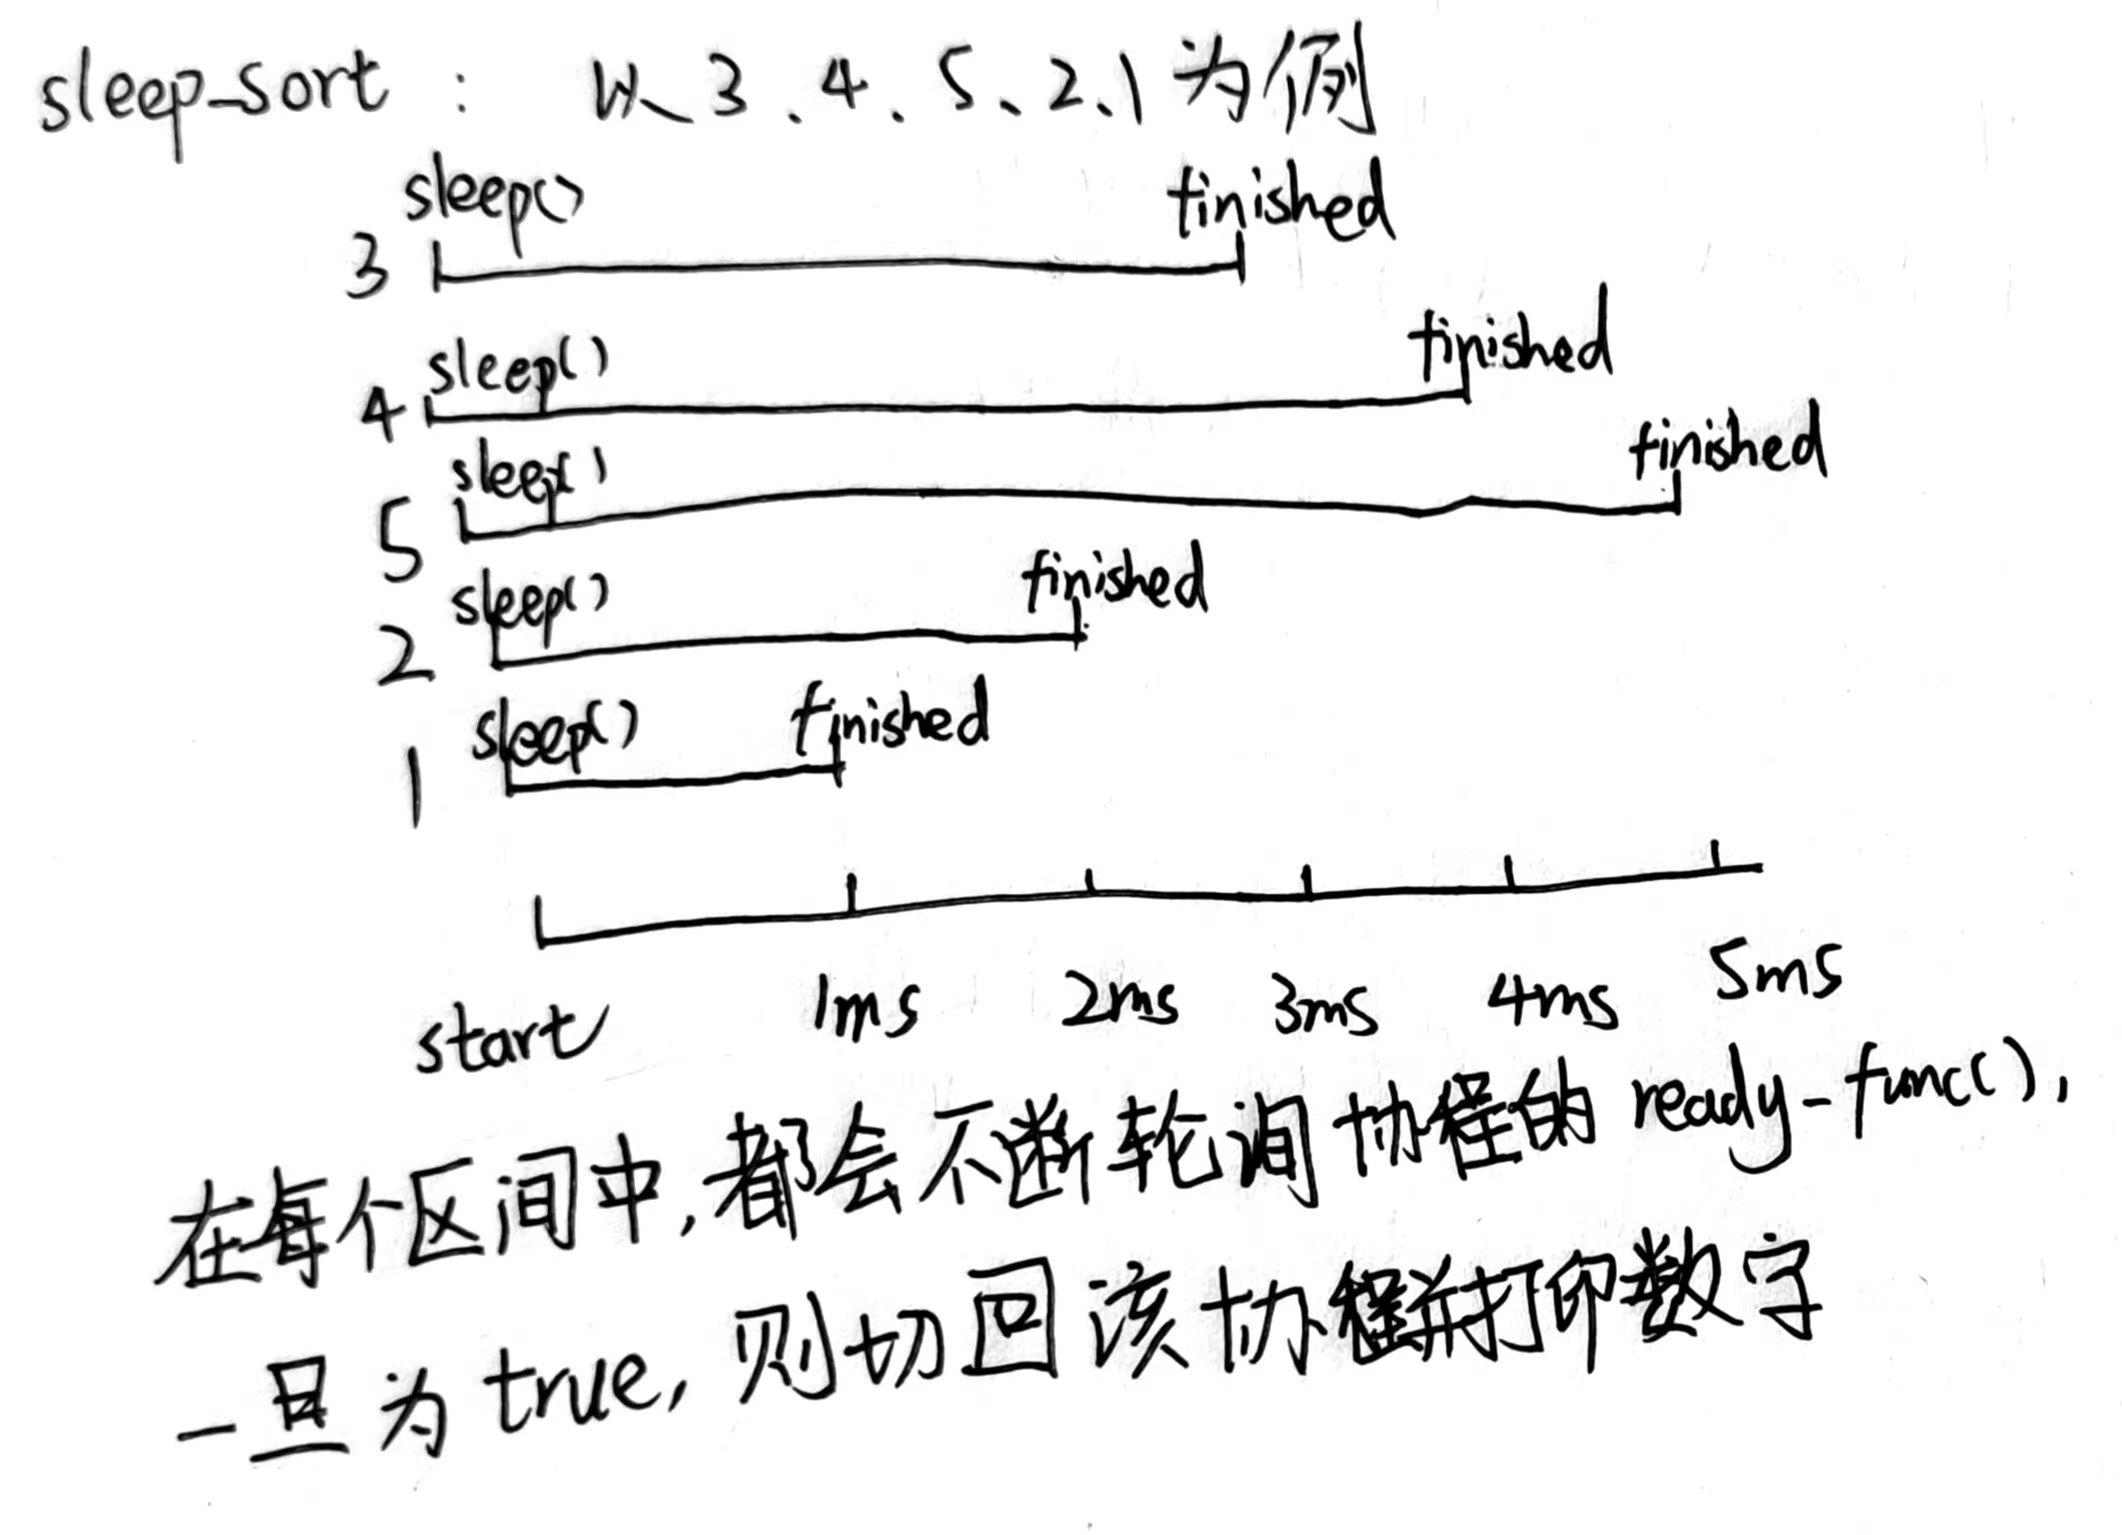 sleep_sort : 以、3、4、5、2、1为例
sleep() finished
3
sleep() finished
4
sleep() finished
5
sleep() finished
2
sleep() finished
1
start 1ms 2ms 3ms 4ms 5ms
在每个区间中,都会不断轮询协程的 ready-func(),
一旦为 true, 则切回该协程并打印数字